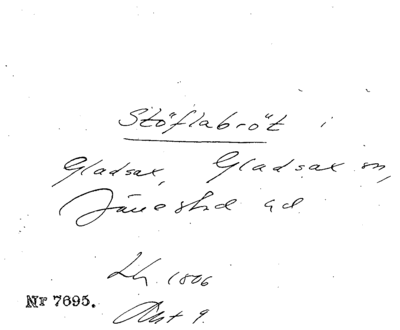 Stöflabröt i
Gladsax, Gladsax sn,
Järrestad hd
Lh. 1806
Akt 9.
Nr 7695.